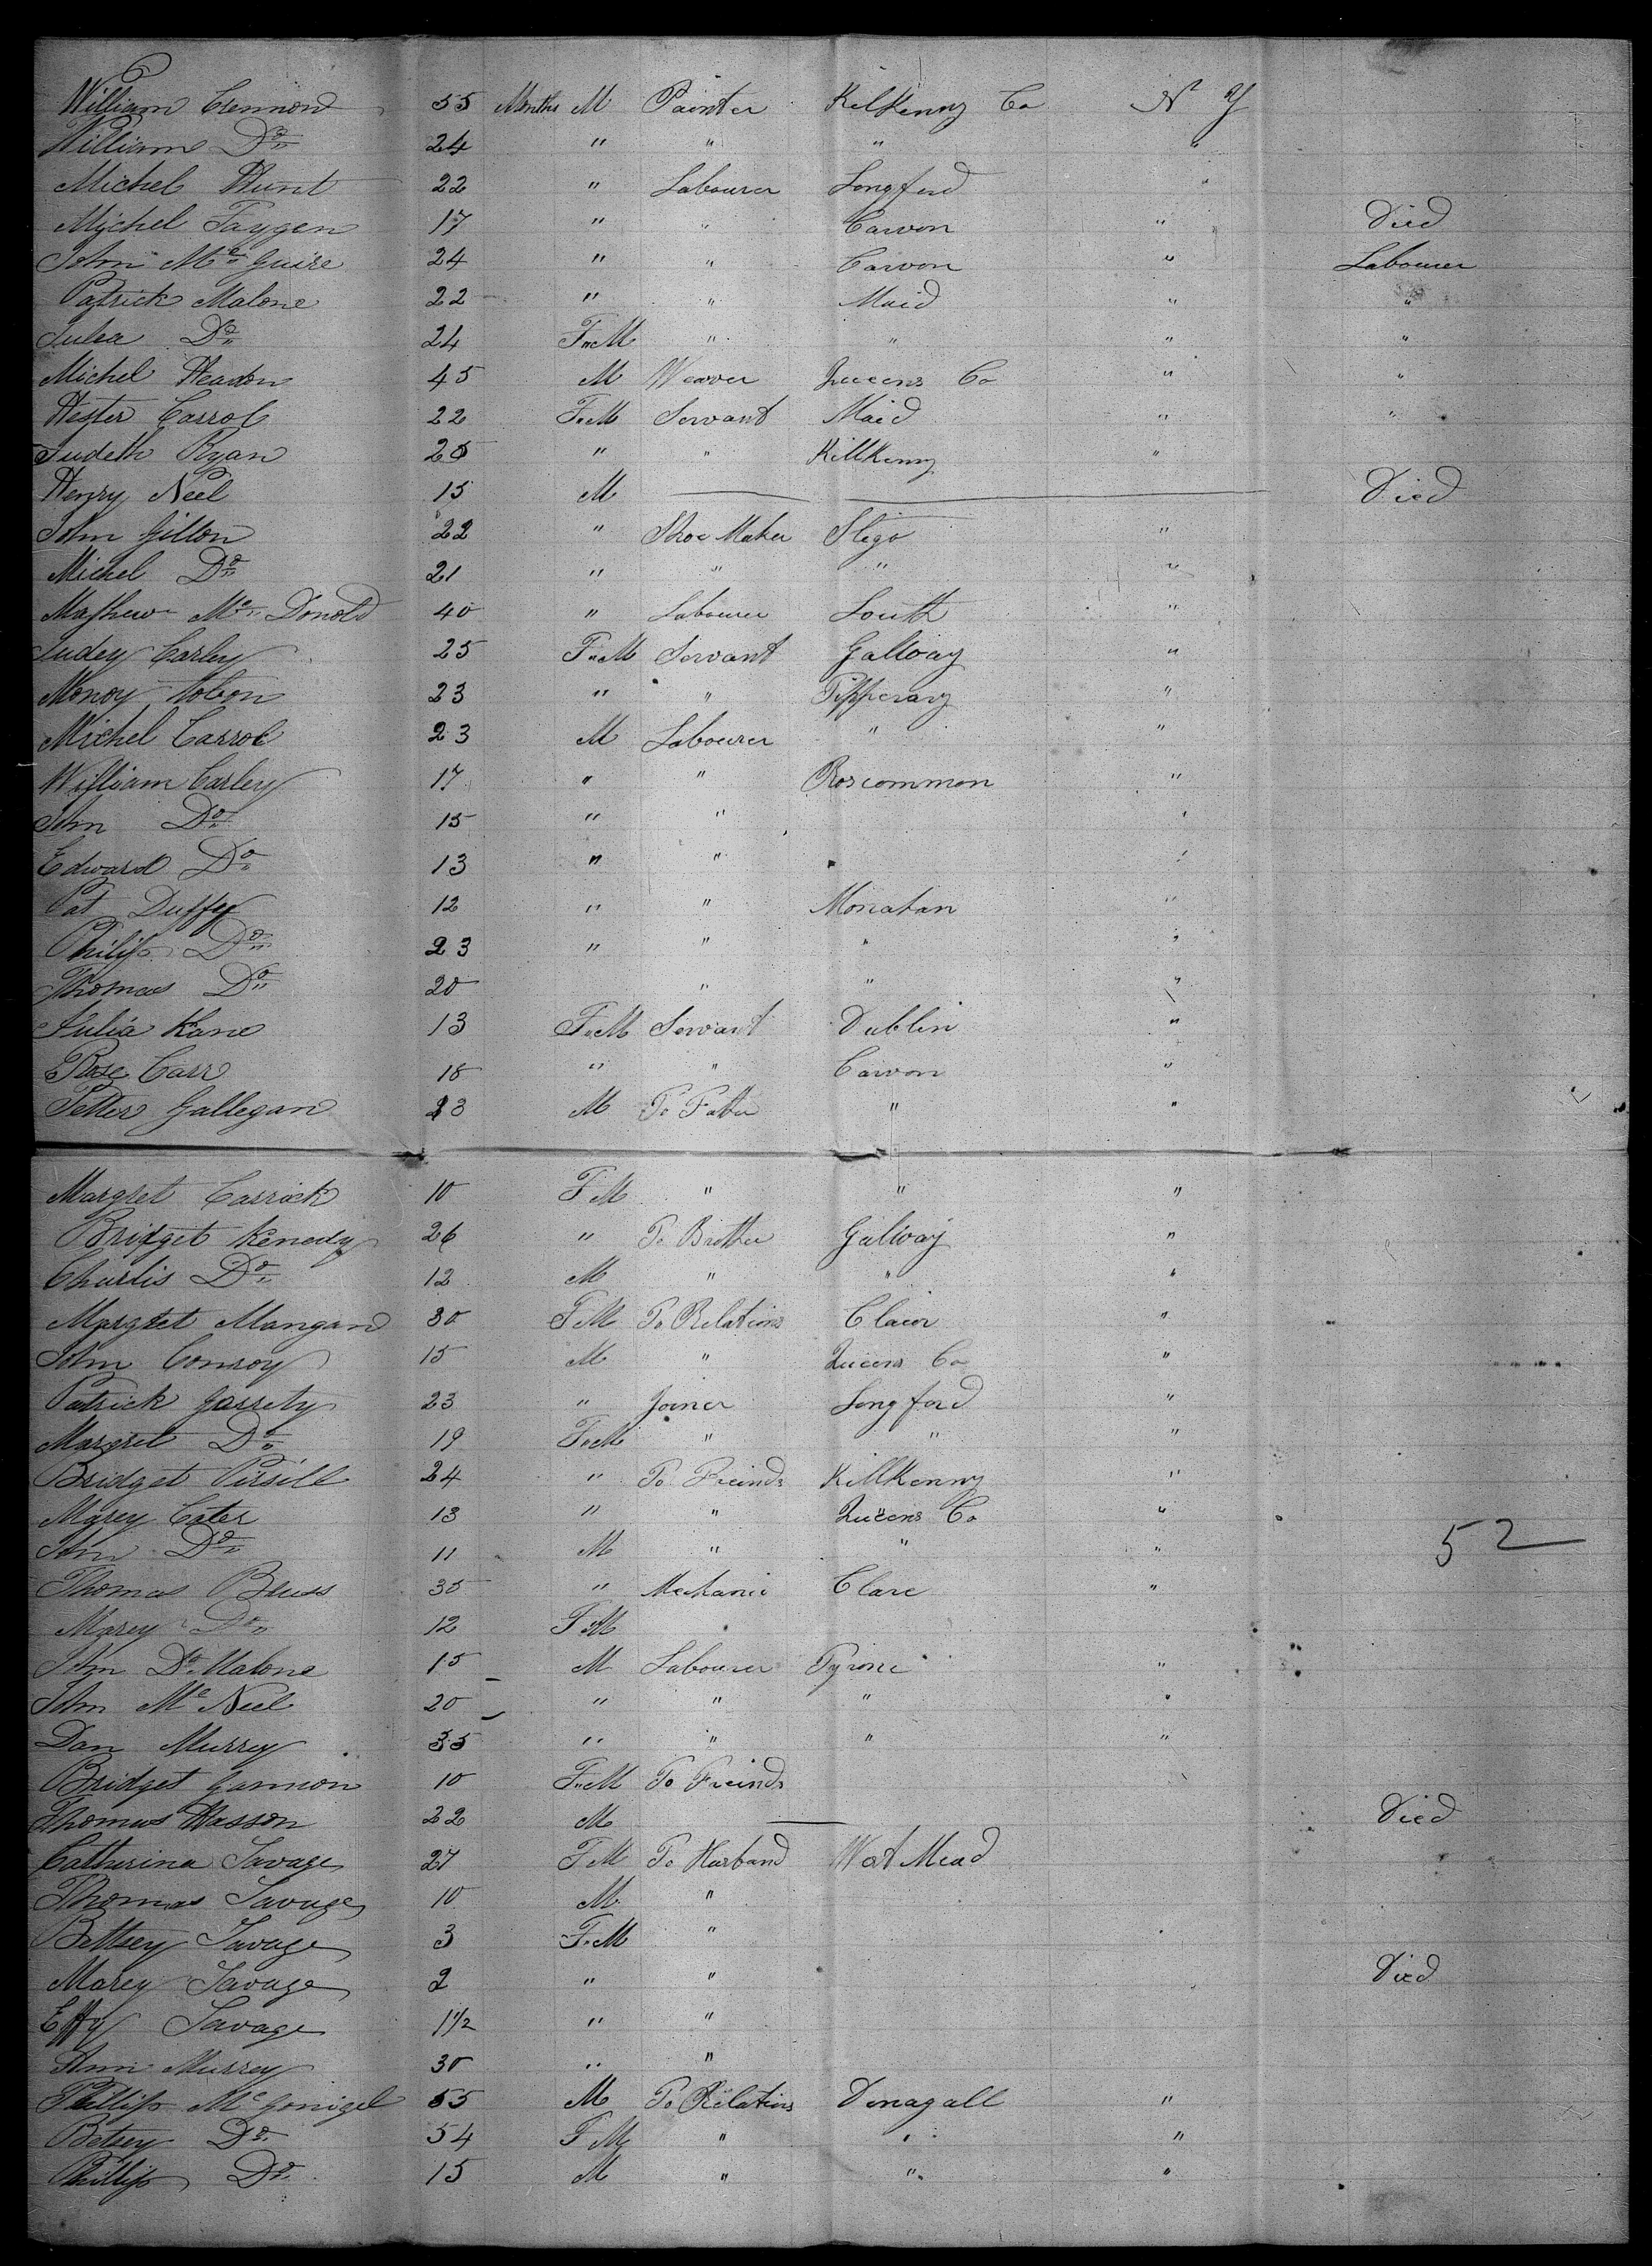 William Cremond 55 Months M Painter Kilkenny Co N Y
William Do 24 " " " "
Michel Hunt 22 " Labourer Longford "
Michel Faygen 17 " " Carvon " Died
John Mc Guire 24 " " Carvon " Labourer
Patrick Malone 22 " " Maid " "
Julea Do 24 F M " " " "
Michel Headon 45 M Weaver Queens Co " "
Hester Carrol 22 F M Servant Maid " "
Judeth Ryan 25 " " KillKenny "
Henry Neel 15 M Died
John Gillon 22 " Shoe Maker Sligo "
Michel Do 21 " " " "
Mathew Mc Donold 40 " Labourer Louth "
Judey Carley 25 F M Servant Gallway "
Monoy Tobon 23 " " Tipperary "
Michel Carrol 23 M Labourer " "
William Carley 17 " " Roscommon "
John Do 15 " " "
Edward Do 13 " " " "
Pat Duffey 12 " " Monahan "
Philip Do 23 " " " "
Thomas Do 20 " " "
Julia Kane 13 F M Servant Dublin "
Rose Carr 18 " " Carvon "
Petter Gallegan 23 M To Father " "
Margret Carrick 10 F M " " "
Bridget Kenedy 26 " To Brother Galway "
Charlis Do 12 M " " "
Margret Mangand 30 F M To Relations Claior "
John Conroy 15 M " Queens Co "
Patrick Garrety 23 " Joiner Longford "
Margret Do 19 F M " " "
Bridget Pursill 24 " To Freinds KillKenny "
Marey Cater 13 " " Queens Co "
John Do 11 M " " " 52
Thomas Bluss 35 " Mechanic Clare "
Marey Do 12 F M
John Do Malone 15 M Labourer Tyrone "
John Mc Neel 20 " " " "
Dan Murrey 35 " " " "
Bridget Gannon 10 F M To Freinds
Thomas Hasson 22 M Died
Catherina Savage 27 F M To Husband West Mead
Thomas Savage 10 M "
Bettsey Savage 3 F M "
Marey Savage 2 " " Died
Effy Savage 1 1/2 " "
Ann Murrey 30 " "
Phillip Mc Gonigel 55 M To Relations Donagall "
Betsey Do 54 F M " " "
Phillip Do 15 M " " "